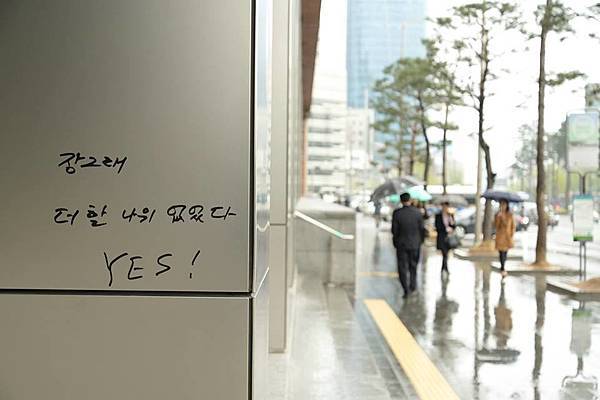 장그래
더할 나위 없었다
YES!